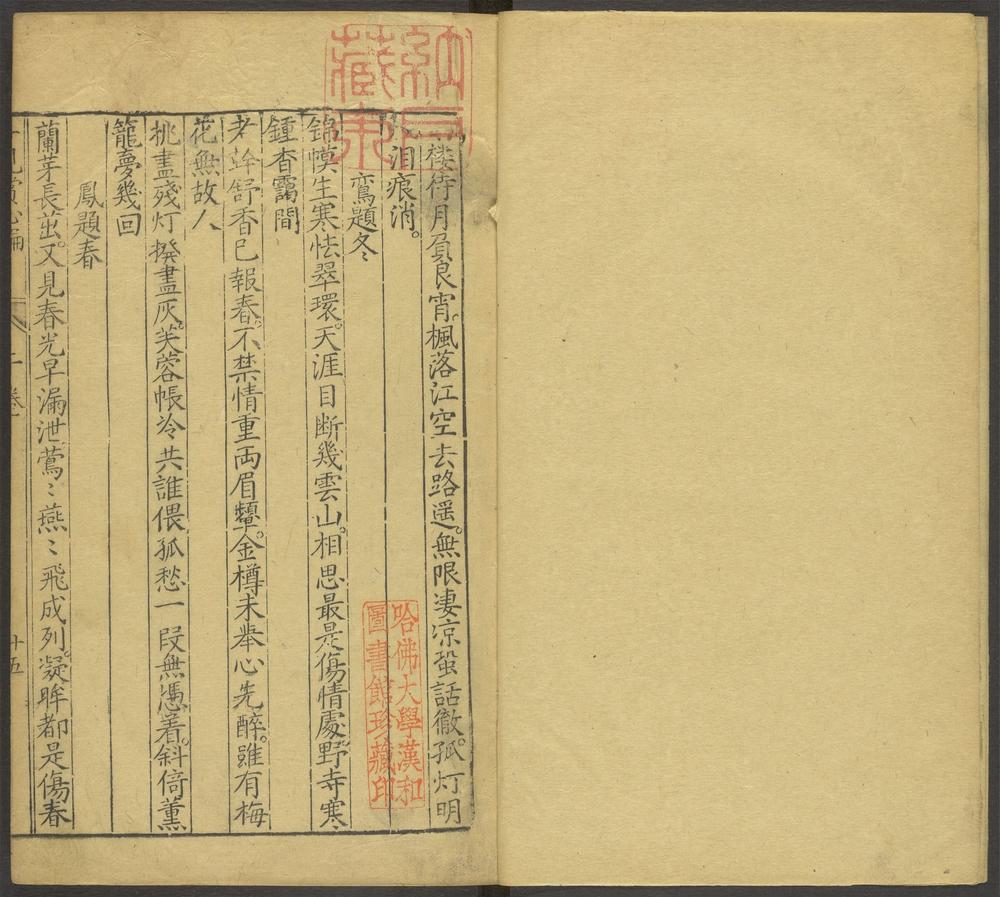 楼待月負良宵。楓落江空去路遥。無限凄凉蛩話徹。孤灯明
泪痕消。
鸞題冬
錦幙生寒怯翠環。天涯目断幾雲山。相思最是傷情處。野寺寒
鍾杳靄間
老幹舒香已報春。不禁情重両眉顰。金樽未举心先醉。雖有梅
花無故人
挑盡殘灯撥盡灰。芙蓉帳冷共誰偎孤愁一段無憑着。斜倚薫
籠夢幾回
鳳題春
蘭芽長茁。又見春光早漏泄鶯〻燕〻飛成列。凝眸都是傷春
卷
十五
哈佛大學漢和
圖書館珍藏印